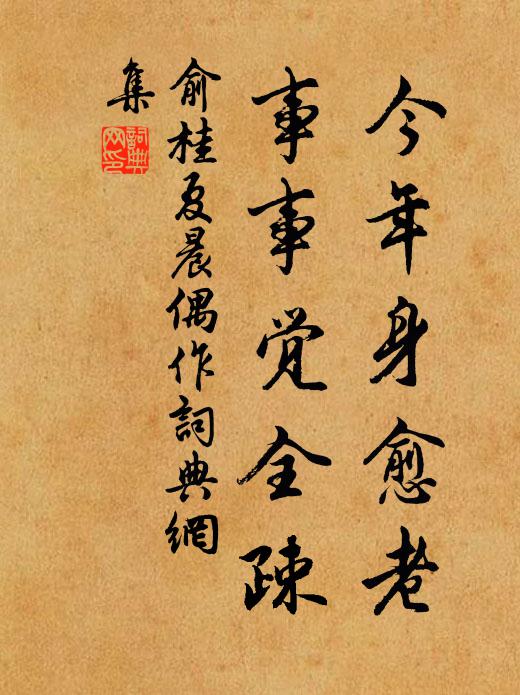 今年身愈老
事事觉全疎
俞桂夏晨偶作詞典網
集
詞典
网印